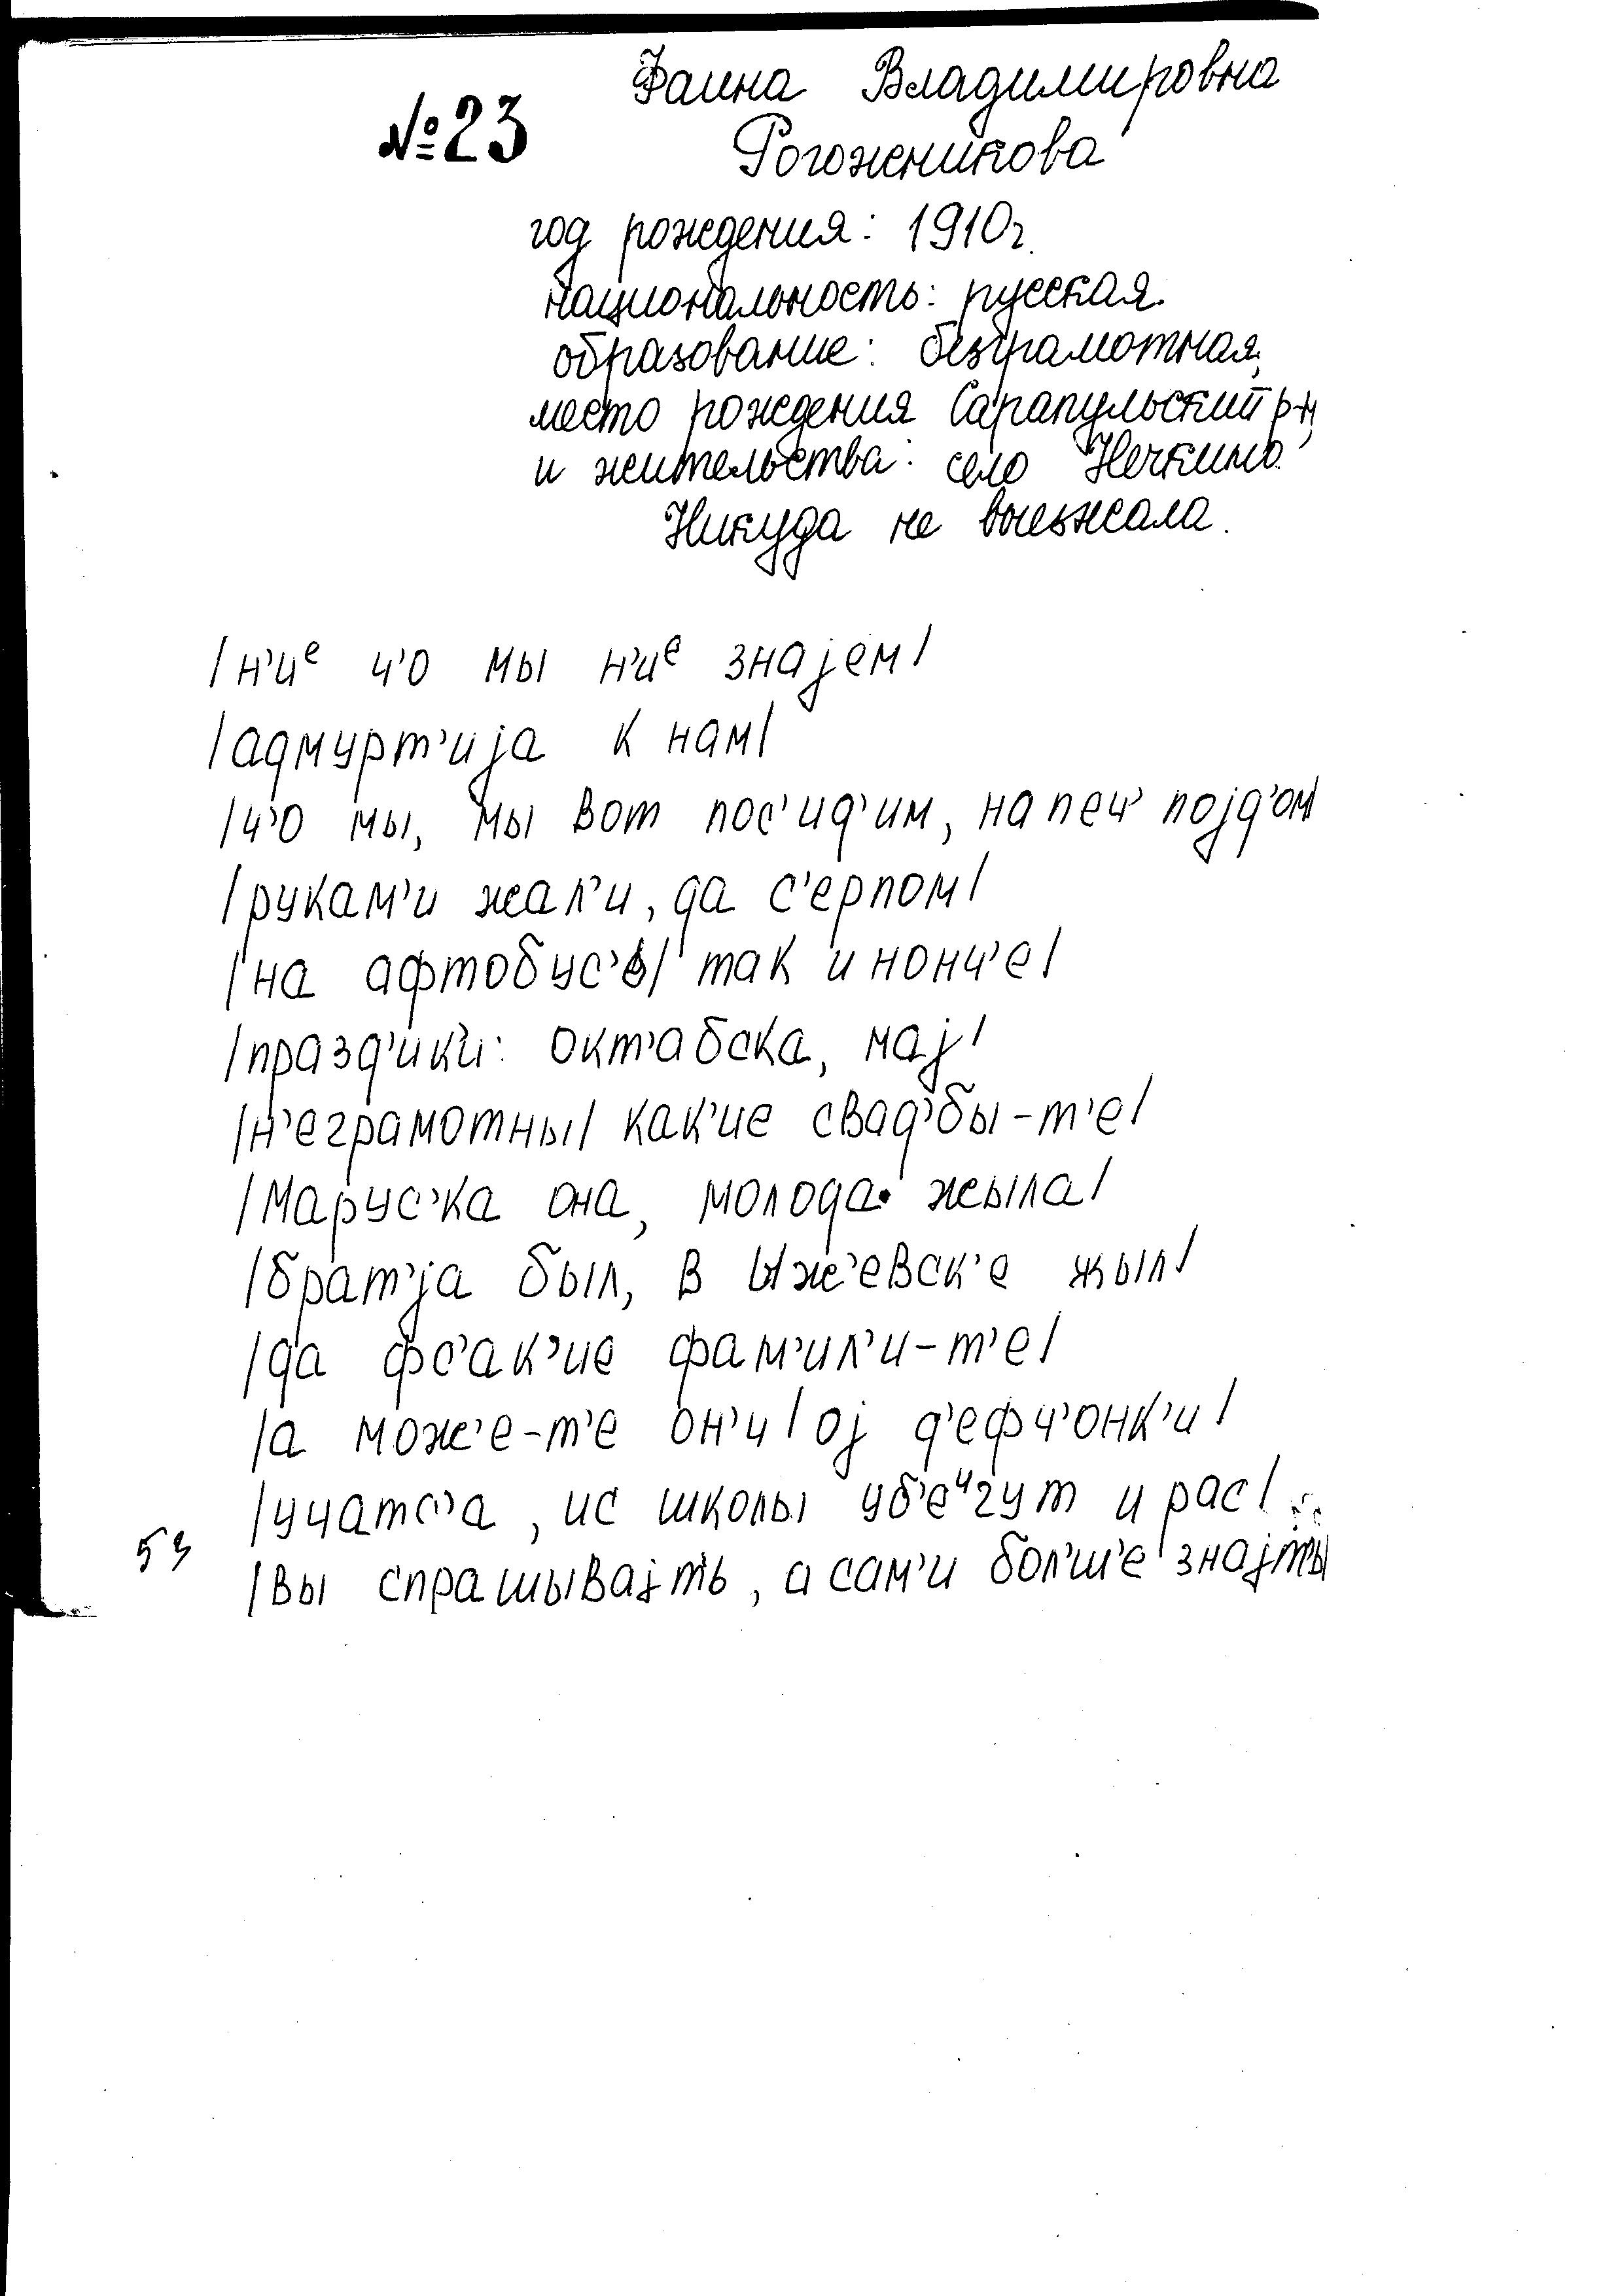 №23
Фаина Владимировна
Рогожникова
год рождения: 1910г.
национальность: русская.
образование: безграмотная,
место рождения Сарапульский р-н,
и жительства: село Нечкино.
Никуда не выезжала.
/н'иᵉ ч'о мы н'иᵉ знајем/
/адмурт'ија к нам/
/ч'о мы, мы вот пос'ид'им, на печ' појд'ом/
/рукам'и жал'и, да с'ерпом/
/на афтобус'ь/ так и нонч'е/
/празд'ики: окт'абска, мај/
/н'еграмотны/ как'ие свад'бы-т'е/
/Марус'ка она, молода жыла/
/брат'ја был, в Ыж'евск'е жыл/
/да фс'ак'ие фам'ил'и-т'е/
/а мож'е-т'е он'и/ ој д'ефч'онк'и/
/учатс'а, ис школы уб'еᶣгут и рас/
/вы спрашывајт'ь, а сам'и бол'ш'е знајт'ь/
53